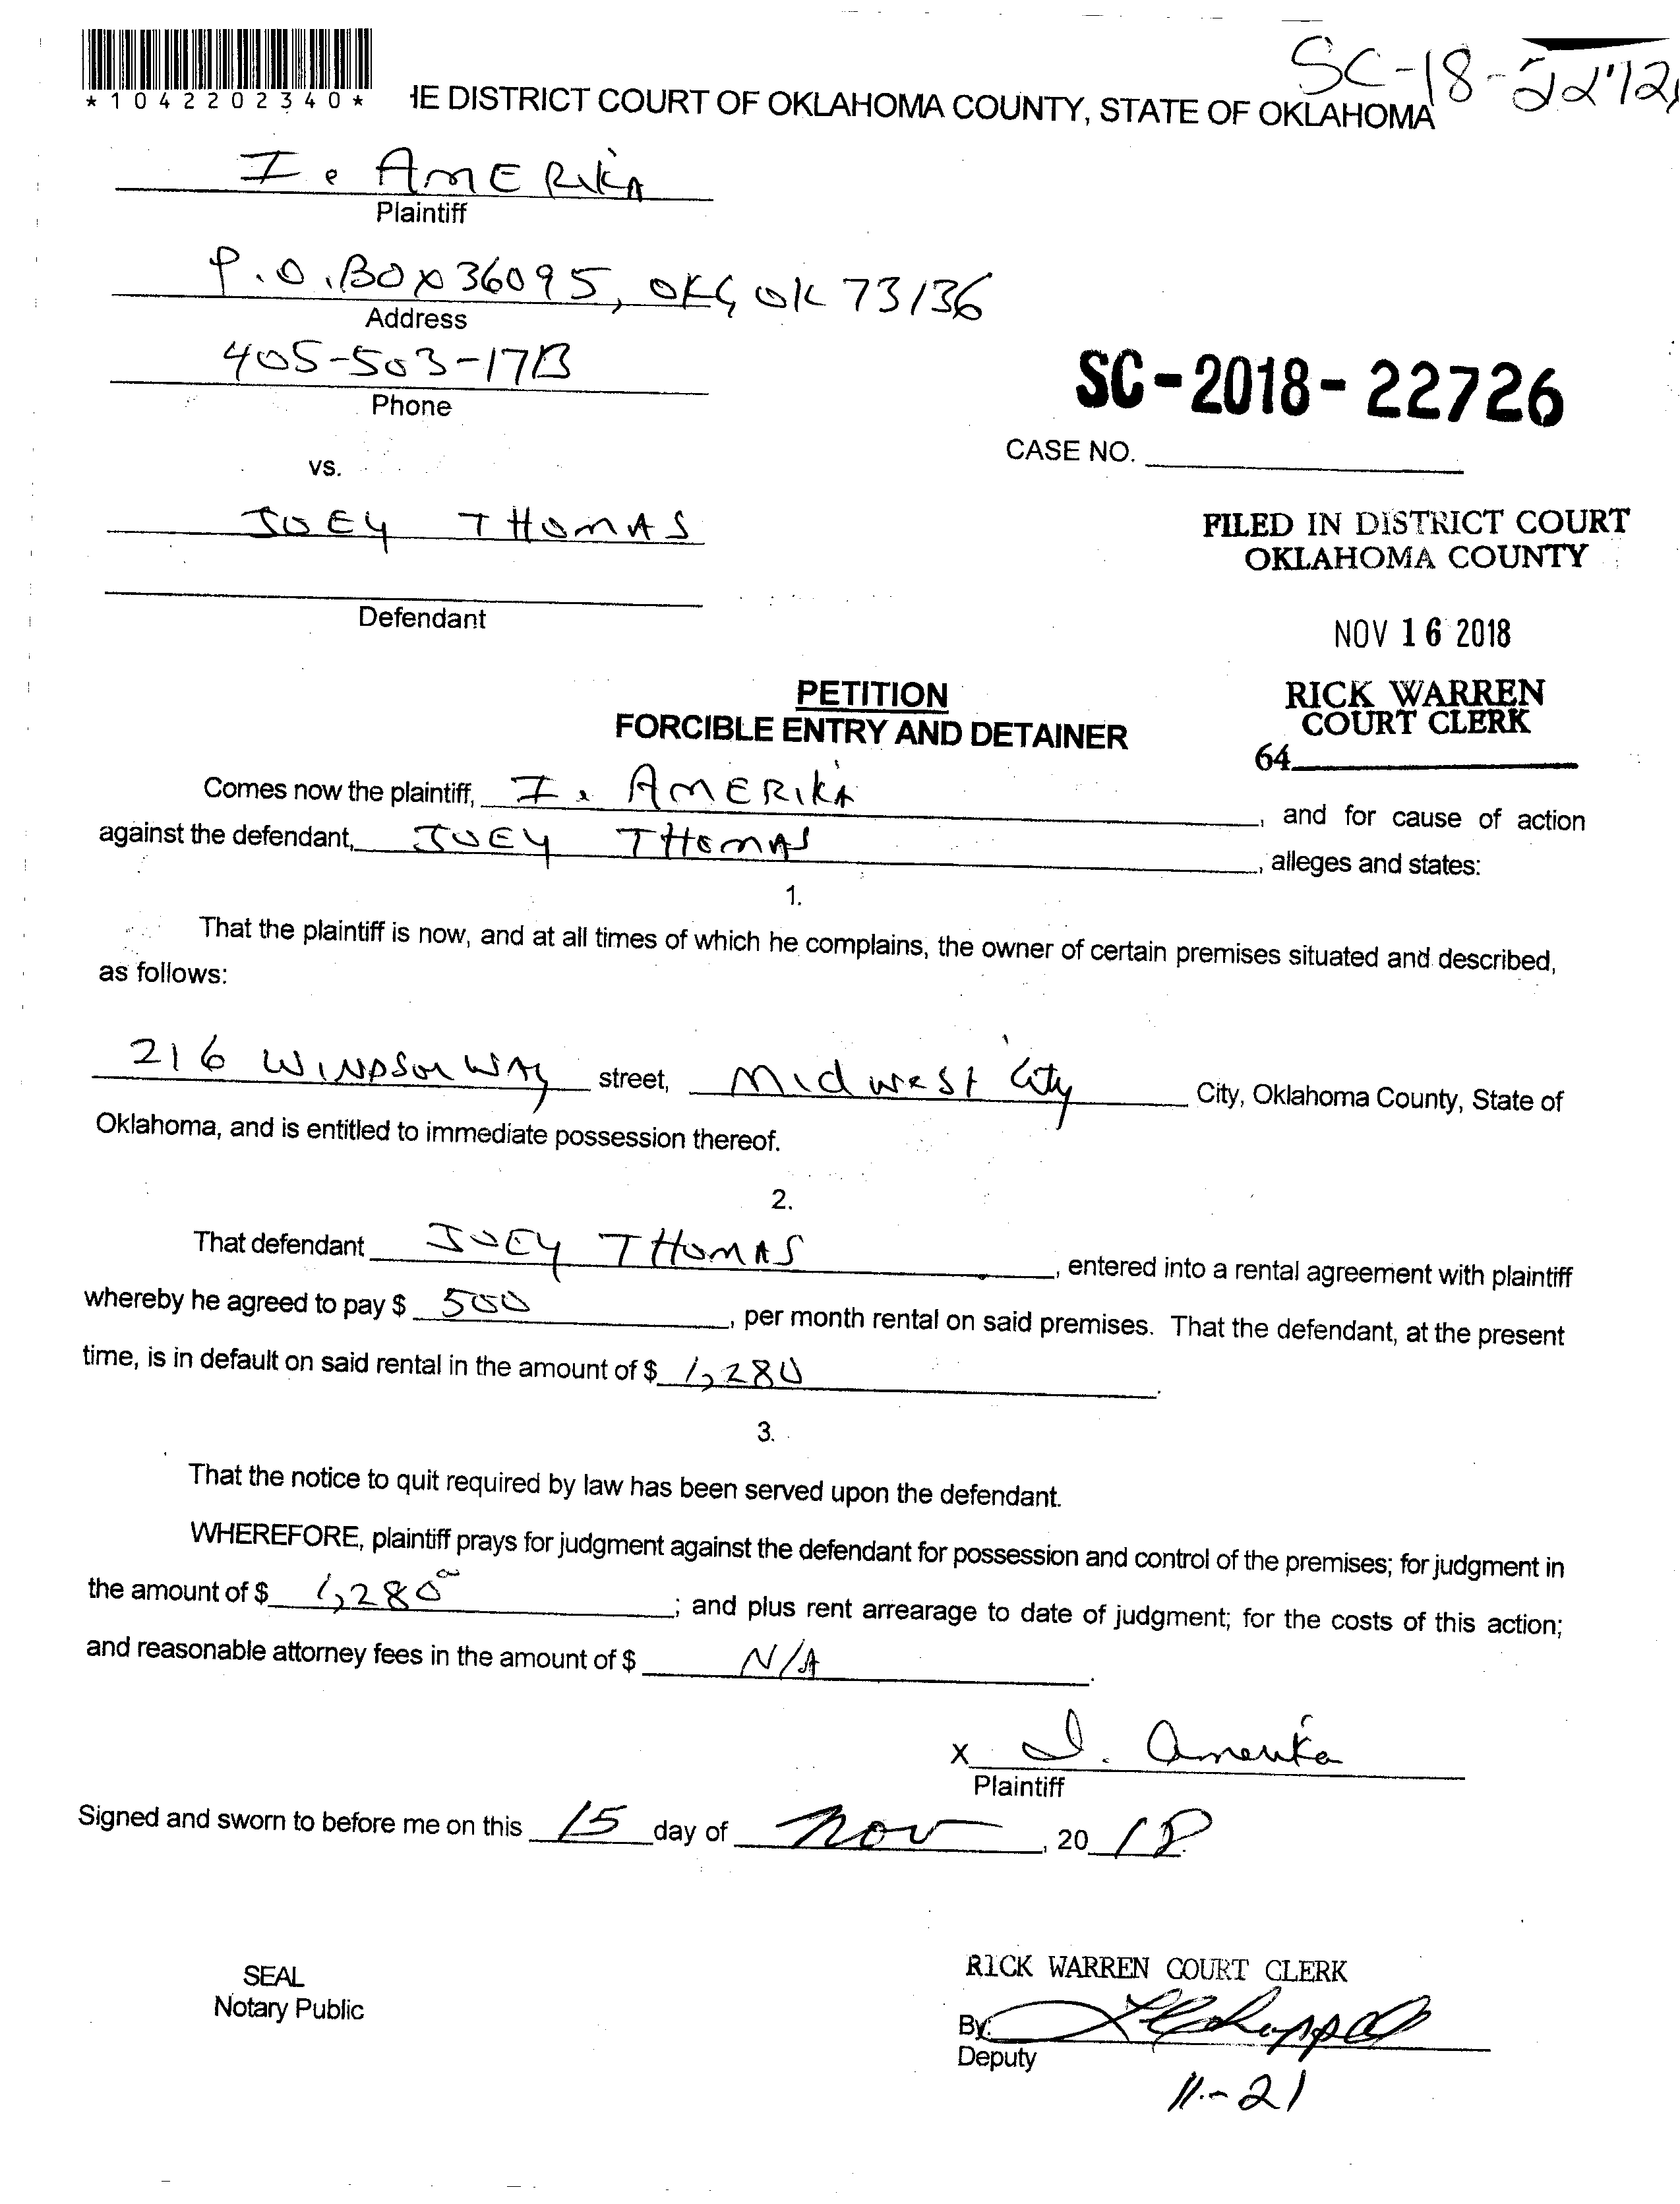 SC-18-2272
*1042202340*
IE DISTRICT COURT OF OKLAHOMA COUNTY, STATE OF OKLAHOMA
I. AMERIKA
Plaintiff
P.O. BOX 36095, OKC, OK 73136
Address
405-503-1713
Phone
SC-2018-22726
CASE NO.
vs.
JOEY THOMAS
FILED IN DISTRICT COURT
OKLAHOMA COUNTY
Defendant
NOV 16 2018
PETITION
RICK WARREN
FORCIBLE ENTRY AND DETAINER
COURT CLERK
64
Comes now the plaintiff, I. AMERIKA, and for cause of action
against the defendant, JOEY THOMAS, alleges and states:
1.
That the plaintiff is now, and at all times of which he complains, the owner of certain premises situated and described,
as follows:
216 WINDSOR WAY street, Midwest City City, Oklahoma County, State of
Oklahoma, and is entitled to immediate possession thereof.
2.
That defendant JOEY THOMAS, entered into a rental agreement with plaintiff
whereby he agreed to pay $ 500, per month rental on said premises. That the defendant, at the present
time, is in default on said rental in the amount of $ 1,280.
3.
That the notice to quit required by law has been served upon the defendant.
WHEREFORE, plaintiff prays for judgment against the defendant for possession and control of the premises; for judgment in
the amount of $ 1,280; and plus rent arrearage to date of judgment; for the costs of this action;
and reasonable attorney fees in the amount of $ N/A.
X I. Amerika
Plaintiff
Signed and sworn to before me on this 15 day of Nov, 20 18
SEAL
Notary Public
RICK WARREN COURT CLERK
By:
Deputy
11-21